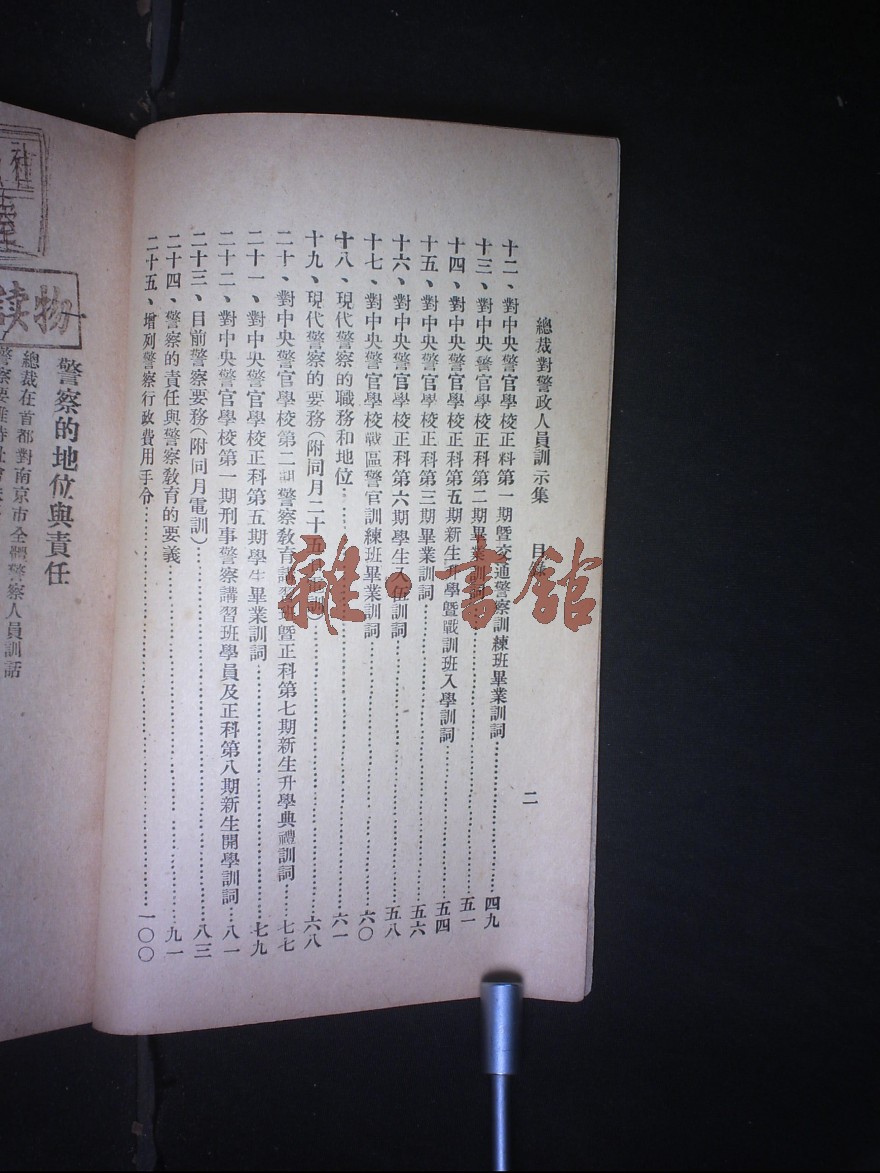 總裁對警政人員訓示集 目錄 二
十二、對中央警官學校正科第一期暨交通警察訓練班畢業訓詞 四九
十三、對中央警官學校正科第二期畢業訓詞 五一
十四、對中央警官學校正科第五期新生升學暨戰訓班入學訓詞 五四
十五、對中央警官學校正科第三期畢業訓詞 五六
十六、對中央警官學校正科第六期學生入伍訓詞 五八
十七、對中央警官學校戰區警官訓練班畢業訓詞 六〇
十八、現代警察的職務和地位 六一
十九、現代警察的要務(附同月二十五日電訓) 六八
二十、對中央警官學校第二期警察教育講習班暨正科第七期新生升學典禮訓詞 七七
二十一、對中央警官學校正科第五期學生畢業訓詞 七九
二十二、對中央警官學校第一期刑事警察講習班學員及正科第八期新生開學訓詞 八一
二十三、目前警察要務(附同月電訓) 八三
二十四、警察的責任與警察敎育的要義 九一
二十五、增列警察行政費用手令 一〇〇
警察的地位與責任
總裁在首都對南京市全體警察人員訓話
警察要維持社會
社
讀物
雜·書館